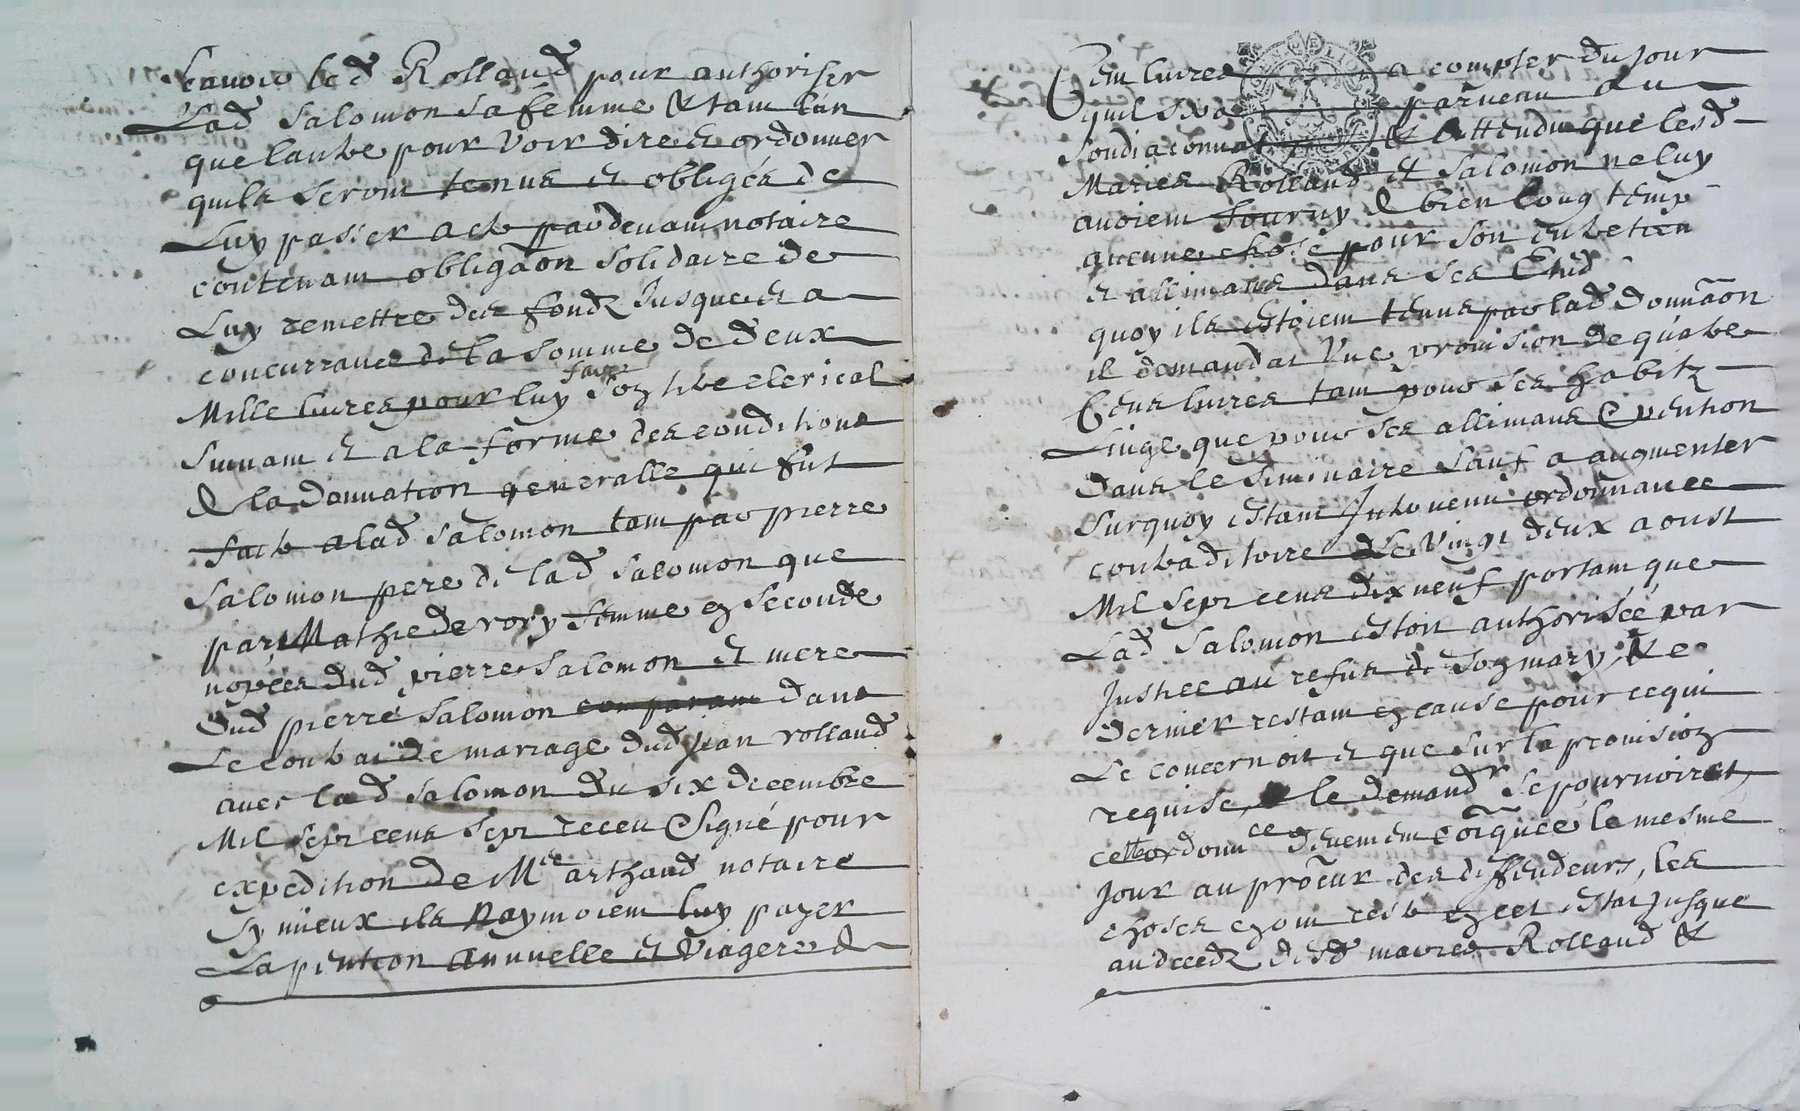 scavoir led Rollaud pour authoriser
Lad Salomon sa femme & tam lun
que lautre pour voir dire et ordonner
quils seront tenus et obligés de
Luy passer acte pardevam notaire
contenam obligãon solidaire de
Luy remettre des fondz jusques et a
concurrance de la somme de deux
Mille livres pour luy faire son titre clerical
suivam et a la forme des conditions
de la donnation generalle qui fut
faite alad Salomon tam par pierre
Salomon pere de lad Salomon que
par Mathie de rory femme en seconde
nopces dud pierre Salomon et mere
dud pierre Salomon comparam dans
Le contrat de mariage dud jean rollaud
avec lad Salomon du six decembre
Mil sept cens sept receu & signé pour
expedition de Me arthaud notaire
sy mieux ils naymoiem luy payer
La pention annuelle et viagere de
Cem livres a compter du jour
quil parvenu au
soudiaconnat & attendu que lesd
Mariés Rollaud et Salomon ne luy
avoiem fourny de bien long temp
aucune chose pour son entretien
et allimans dans ses Etud
quoy ils estoiem tenus par lad donnãon
il demandat une provision de quatre
Cens livres tam pour ses habitz
Linge que pour ses allimans & pention
dans le seminaire sauf a augmenter
surquoy estam Intervenu ordonnance
contraditoire Le vingt deux aoust
Mil sept cens dix neuf portam que
Lad Salomon estoit authorisée par
Justice au refus de son mary, & le
dernier restam en cause pour ce qui
Le concernoit et que sur la provision
requise le demandr se pourvoiroit,
cette ordonnce duemem cõiquée le mesme
jour au procur des deffendeurs, les
choses ont resté en cet estat jusque
au decedz desd mariés Rollaud &